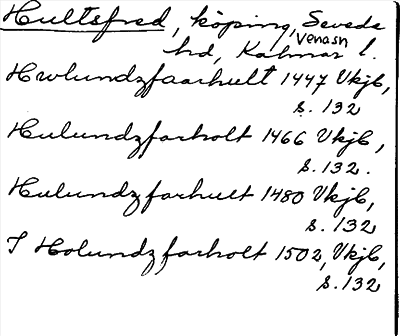 Hultsfred, köping, Sevede
Venasn
hd, Kalmar l.
Hwlundzfaarhult 1447 Vkjb,
s. 132
Hulundzfarholt 1466 Vkjb,
s. 132.
Hulundzfarhult 1480 Vkjb,
s. 132
I Holundzfarholt 1502, Vkjb,
s. 132